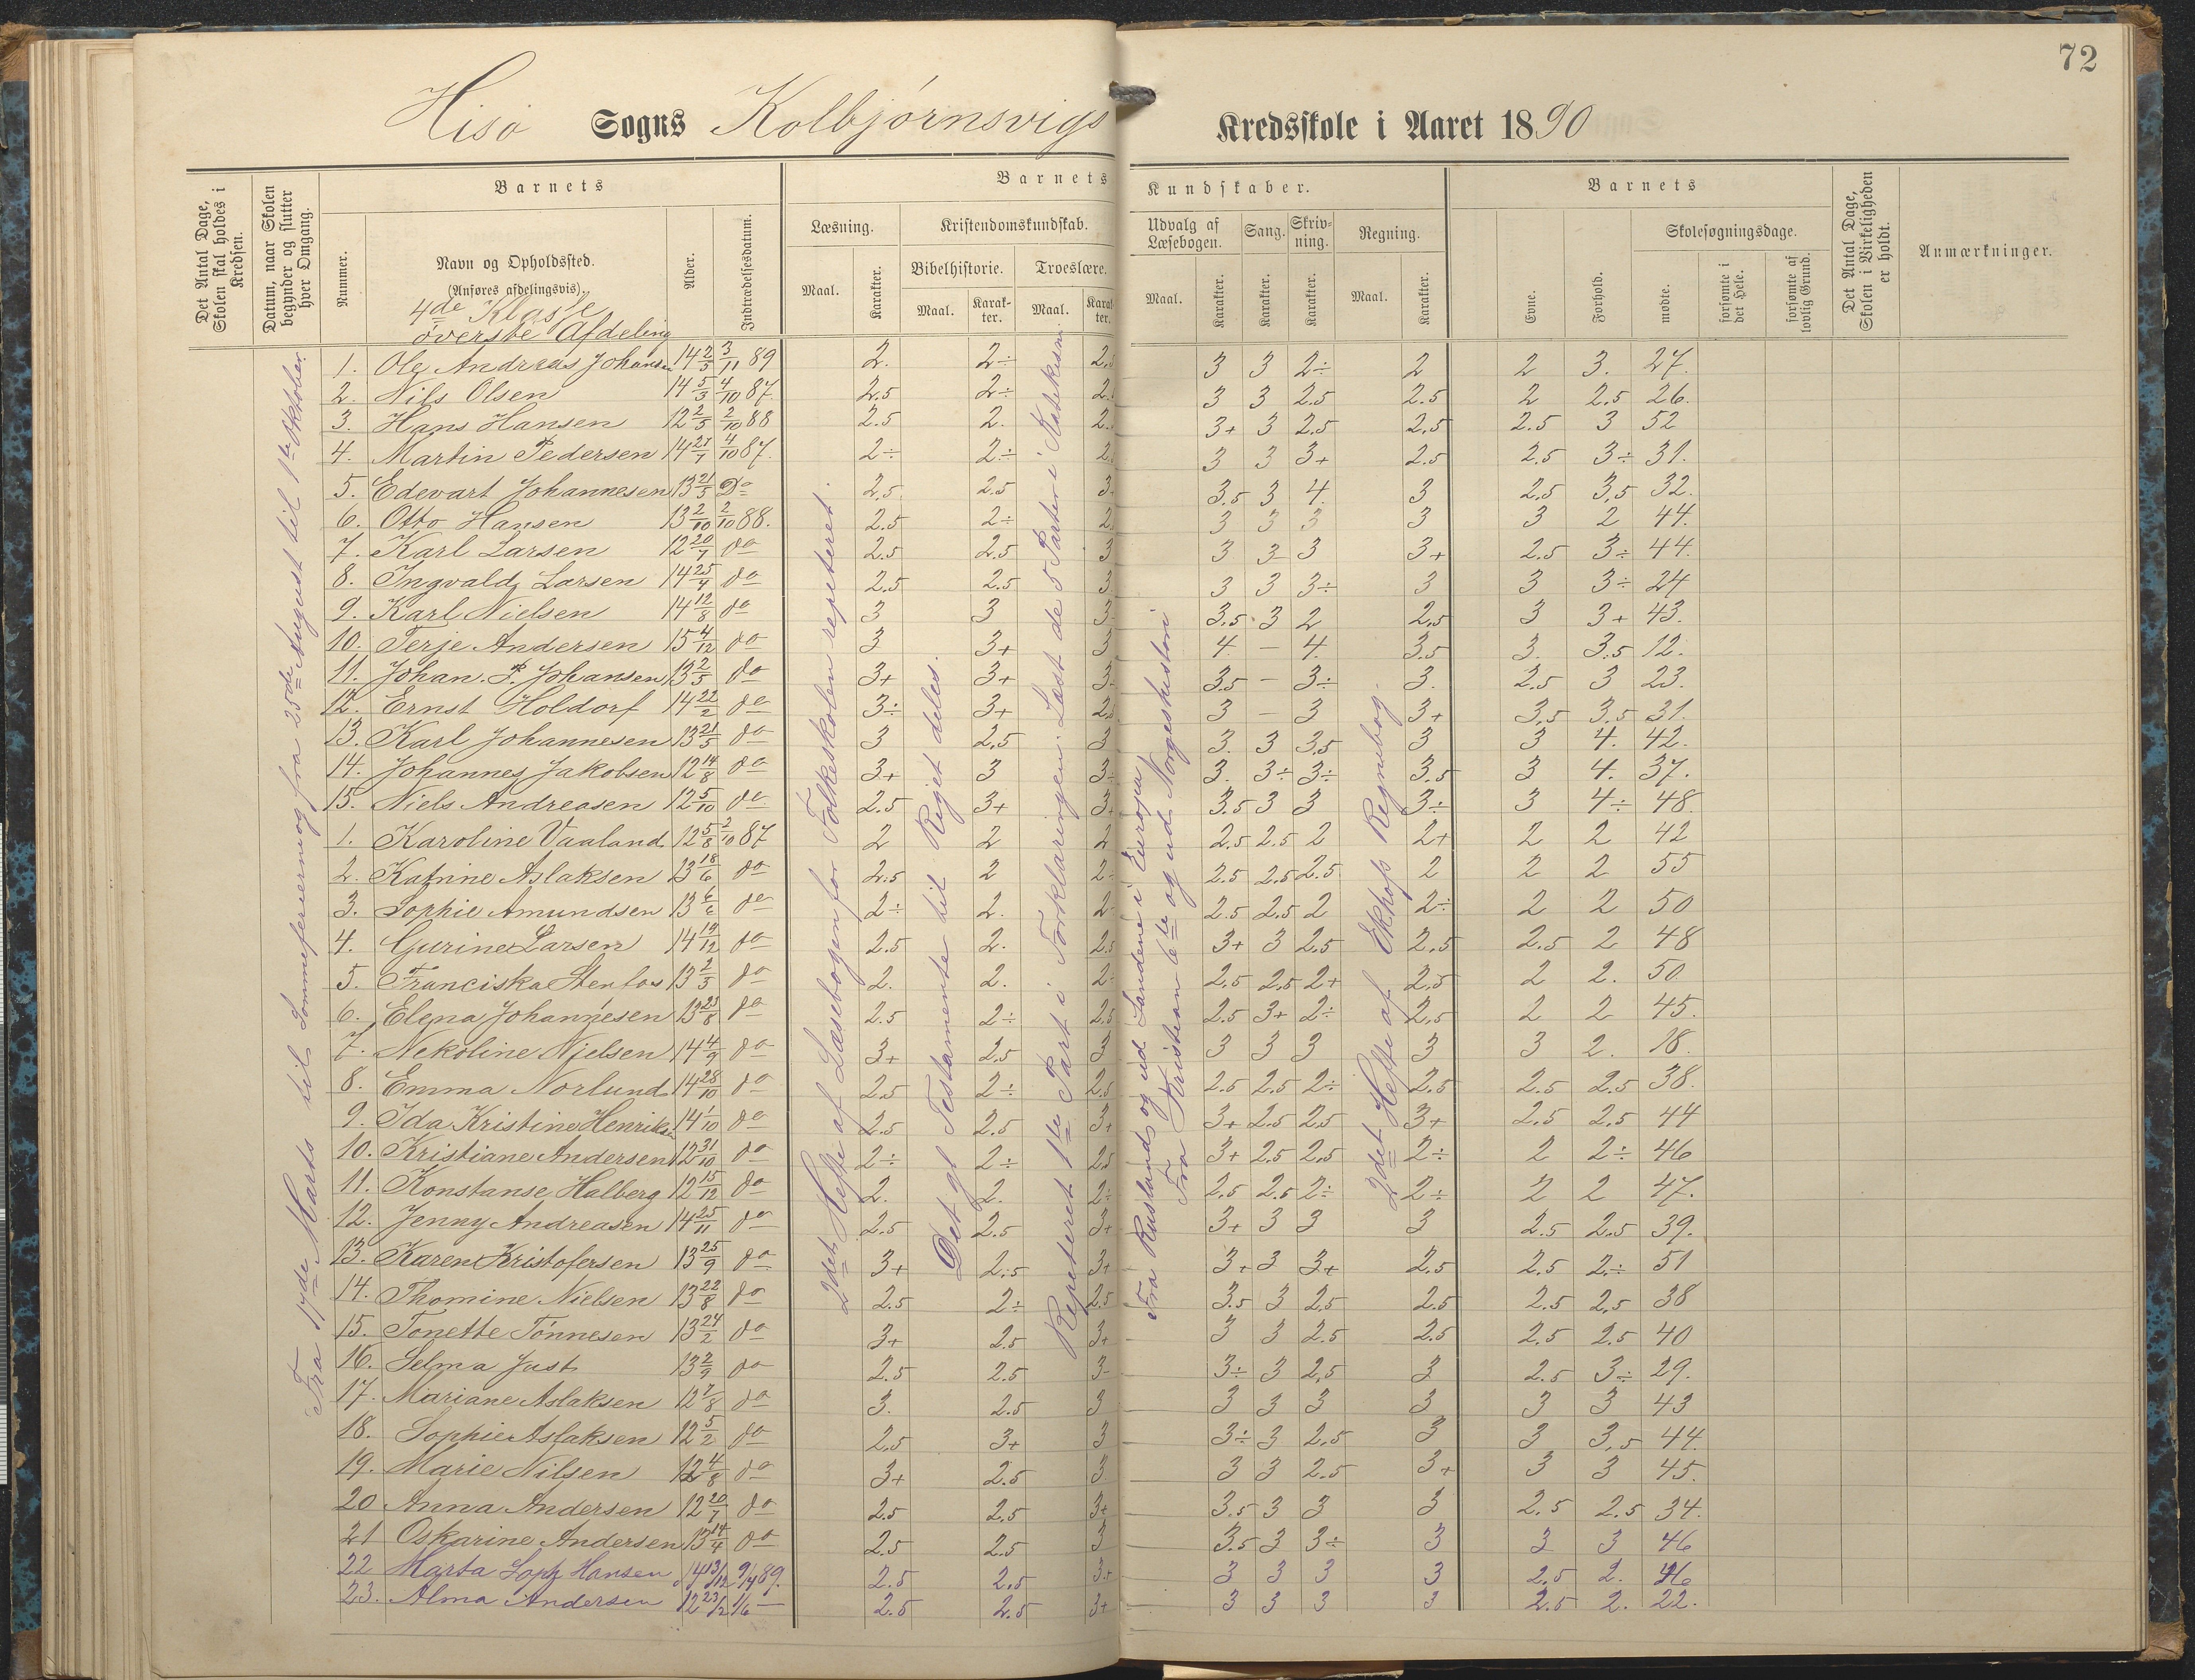 72
Hisø Sogns Kolbjørnsvigs Kredsskole i Aaret 1890
Det Antal Dage, Skolen skal holdes i Kredsen.
Datum, naar Skolen begynder og slutter hver Omgang.
Barnets
Nummer.
Navn og Opholdssted.
(Anføres afdelingsvis).
4de Klasse
øverste Afdeling
Alder.
Indtrædelsesdatum.
Barnets Kundskaber.
Læsning.
Maal.
Karakter.
Kristendomskundskab.
Bibelhistorie.
Maal.
Karakter.
Troeslære.
Maal.
Karakter.
Udvalg af Læsebogen.
Maal.
Karakter.
Sang.
Karakter.
Skrivning.
Karakter.
Regning.
Maal.
Karakter.
Barnets
Evne.
Forhold.
Skolesøgningsdage.
mødte.
forsømte i det Hele.
forsømte af lovlig Grund.
Det Antal Dage, Skolen i Virkeligheden er holdt.
Anmærkninger.
Fra 17de Marts til Sommerferierne og fra 25de August til 1ste Oktober.
2det Hefte af Læsebogen for Folkeskolen repeteret.
Det gl Testamente til Riget deles.
Repeteret 1ste Part i Forklaringen. Læst de 5 Parter i Katekismen.
Fra Rusland og ud Landene i Europa
Fra Kristian 6te og ud Norgeshistori
2det Hefte af Ekhofs Regnebog.
1. Ole Andreas Johansen 14 2/5 3/11 89 2. 2÷ 2.5 3 3 2÷ 2 2 3. 27.
2. Nils Olsen 14 5/3 4/10 87. 2.5 2÷ 2. 3 3 2.5 2.5 2 2.5 26.
3. Hans Hansen 12 2/5 2/10 88 2.5 2. 2. 3+ 3 2.5 2.5 2.5 3 52
4. Martin Pedersen 14 27/1 4/10 87. 2÷ 2÷ 2. 3 3 3+ 2.5 2.5 3÷ 31.
5. Edevart Johannesen 13 21/5 Do 2.5 2.5 3 3.5 3 4. 3 2.5 3.5 32.
6. Otto Hansen 13 2/10 2/10 88. 2.5 2÷ 2. 3 3 3 3 3 2 44.
7. Karl Larsen 12 20/7 do 2.5 2.5 3 3 3 3 3+ 2.5 3÷ 44.
8. Ingvald Larsen 14 25/4 do 2.5 2.5 3 3 3 3÷ 3 3 3÷ 24
9. Karl Nielsen 14 12/8 do 3 3 3 3.5 3 2 2.5 3 3+ 43.
10. Terje Andersen 15 4/12 do 3 3+ 3 4. — 4. 3.5 3. 3.5 12.
11. Johan. P. Johansen 13 2/5 do 3+ 3+ 3 3.5 — 3÷ 3. 2.5 3 23.
12. Ernst Holdorf 14 22/2 do 3÷ 3+ 2.5 3 — 3 3+ 3.5 3.5 31.
13. Karl Johannesen 13 21/5 do 3 2.5 3 3. 3 3.5 3 3 4. 42.
14. Johannes Jakobsen 12 14/8 do 3+ 3 3÷ 3. 3÷ 3÷ 3.5 3 4. 37.
15. Niels Andreasen 12 5/10 do 2.5 3+ 3+ 3.5 3 3 3÷ 3 4÷ 48.
1. Karoline Vaaland 12 5/8 2/10 87 2 2 2 2.5 2.5 2 2+ 2 2 42
2. Katrine Aslaksen 13 18/6 do 2.5 2 2÷ 2.5 2.5 2.5 2 2 2 55
3. Sophie Amundsen 13 6/6 do 2÷ 2. 2 2.5 2.5 2 2÷ 2 2 50
4. Gurine Larsen 14 19/12 do 2.5 2. 2.5 3+ 3 2.5 2.5 2.5 2 48
5. Franciska Stenfos 13 2/5 do 2. 2. 2÷ 2.5 2.5 2+ 2.5 2 2. 50.
6. Elena Johannesen 13 23/8 do 2.5 2÷ 2.5 2.5 3+ 2÷ 2.5 2 2 45.
7. Nekoline Njelsen 14 4/9 do 3+ 2.5 3 3 3 3 3 3 2. 18.
8. Emma Norlund 14 28/10 do 2.5 2÷ 2.5 2.5 2.5 2÷ 2.5 2.5 2.5 38.
9. Ida Kristine Henriksen 14 1/10 do 2.5 2.5 3+ 3+ 2.5 2.5 3+ 2.5 2.5 44
10. Kristiane Andersen 12 31/10 do 2÷ 2÷ 2.5 3+ 2.5 2.5 2÷ 2 2÷ 46
11. Konstanse Halberg 12 15/12 do 2. 2. 2÷ 2.5 2.5 2÷ 2÷ 2 2 47.
12. Jenny Andreasen 14 25/11 do 2.5 2.5 3+ 3+ 3 3 3 2.5 2.5 39.
13. Karen Kristofersen 13 25/9 do 3+ 2.5 3+ 3+ 3 3+ 2.5 2.5 2÷ 51
14. Thomine Nielsen 13 22/8 do 2.5 2÷ 2.5 3.5 3 2.5 2.5 2.5 2.5 38
15. Tonette Tønnesen 13 24/2 do 3+ 2.5 3+ 3 3 2.5 2.5 2.5 2.5 40
16. Selma Just 13 2/9 do 2.5 2.5 3 3÷ 3 2.5 3 2.5 3÷ 29.
17. Mariane Aslaksen 12 7/8 do 3. 2.5 3 3 3 3 3 3 3 43
18. Sophie Aslaksen 12 5/2 do 2.5 3+ 3 3÷ 3 2.5 3 3 3.5 44.
19. Marie Nilsen 12 4/8 do 3+ 2.5 3 3 3 2.5 3+ 3 3 45.
20 Anna Andersen 12 20/7 do 2.5 2.5 3+ 3.5 3 3 3 2.5 2.5 34.
21 Oskarine Andersen 13 14/4 do 2.5 2.5 3 3.5 3 3÷ 3 3 3 46
22 Marta Hansen 14 13/12 9/4 89. 2.5 2.5 3+ 3 3 3 3 2.5 2. 46
23. Alma Andersen 12 23/2 1/6 — 2.5 2.5 3+ 3 3 3 3 2.5 2. 22.